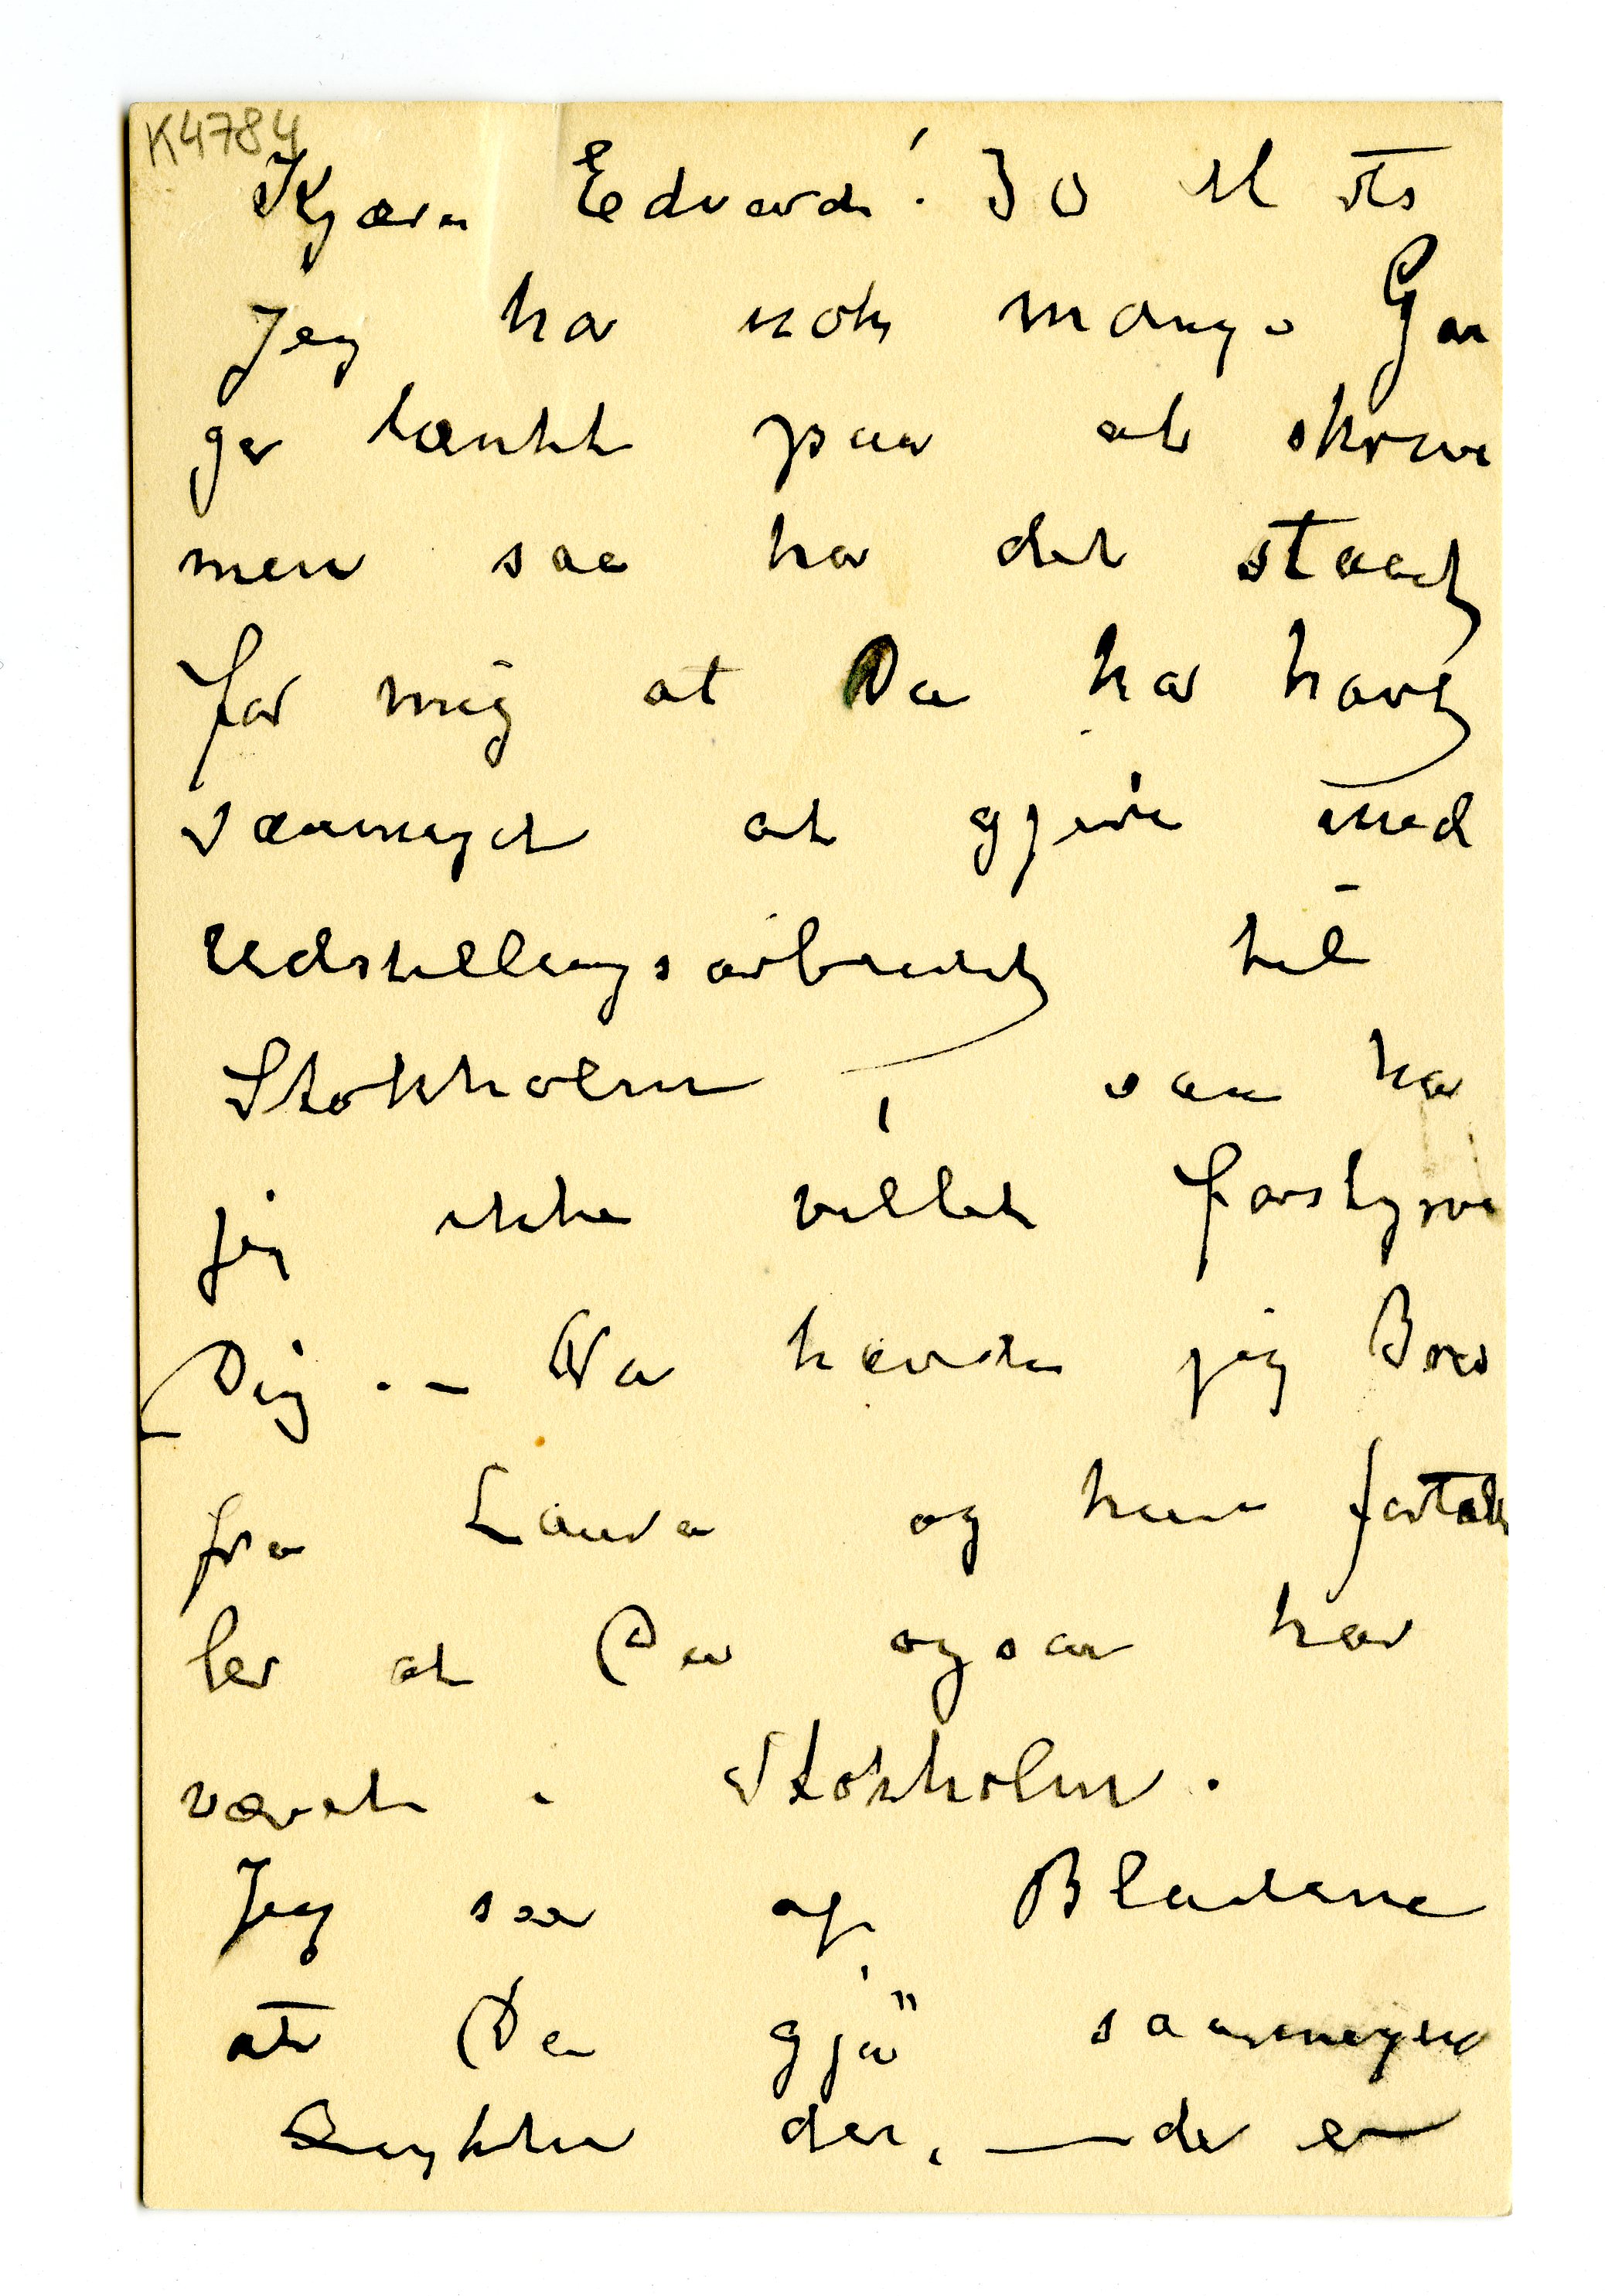 K4784
Kjære Edvard! 30 st ds
Jeg har nok mange Gan
ger tænkt paa at skrive
men saa har det staaet
for mig at Du har havt
saameget at gjøre med
Udstillingsarbeidet til
Stokholm, saa har
jeg ikke villet forstyrre
Dig. – Nu havde jeg Brev
fra Laura og hun fortæl
ler at Du ogsaa har
været i Stokholm.
Jeg saa af Bladene
at Du gjør saameget
Lykke der, – der er